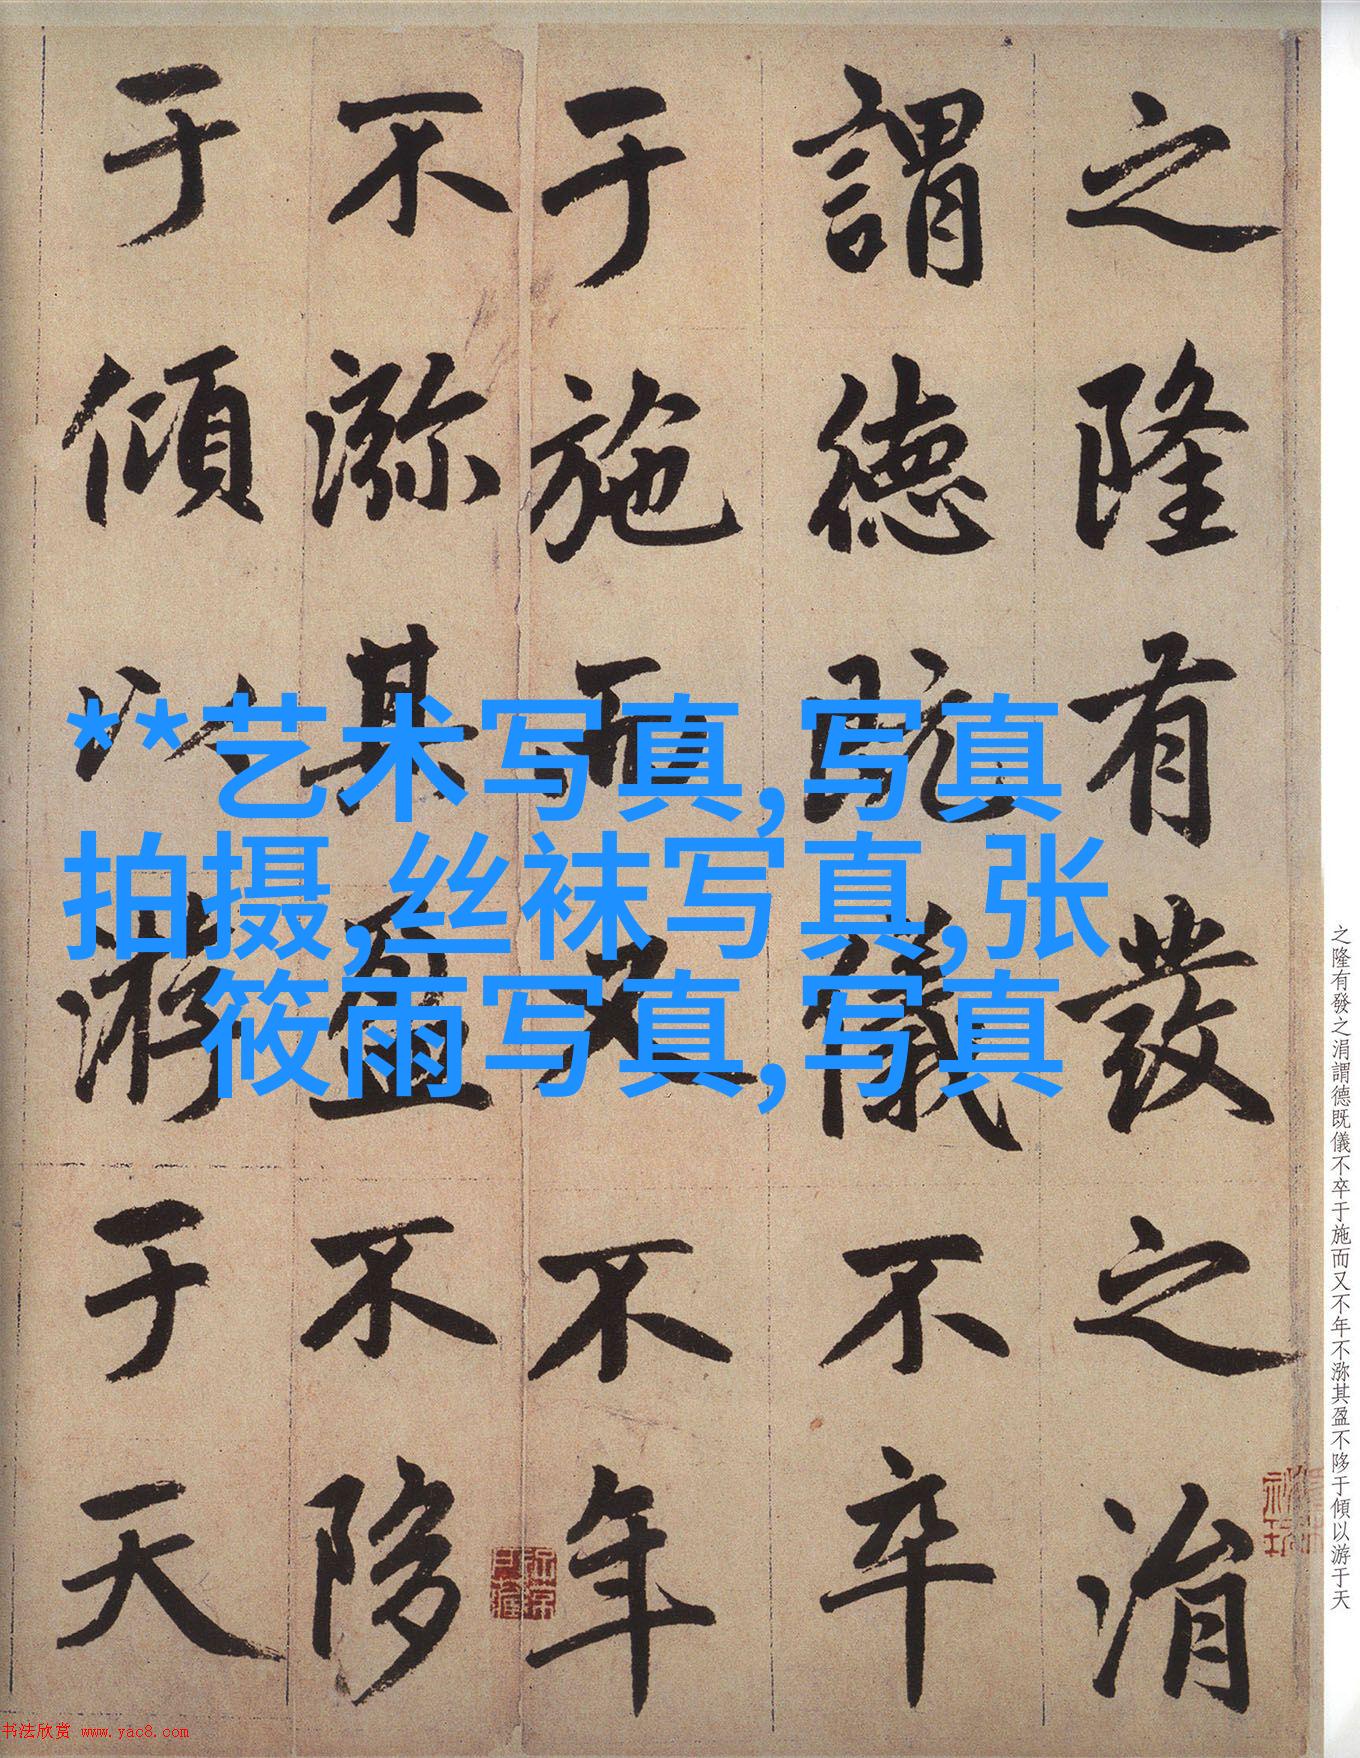 之隆有發之涓
謂德既儀不卒
于施而又不年
不㳽其盈不陊
于傾以游于天
**艺术写真,写真
拍摄,丝袜写真,张
筱雨写真,写真
之隆有發之涓謂德既儀不卒于施而又不年不㳽其盈不陊于傾以游于天
书法欣赏 www.yac8.com